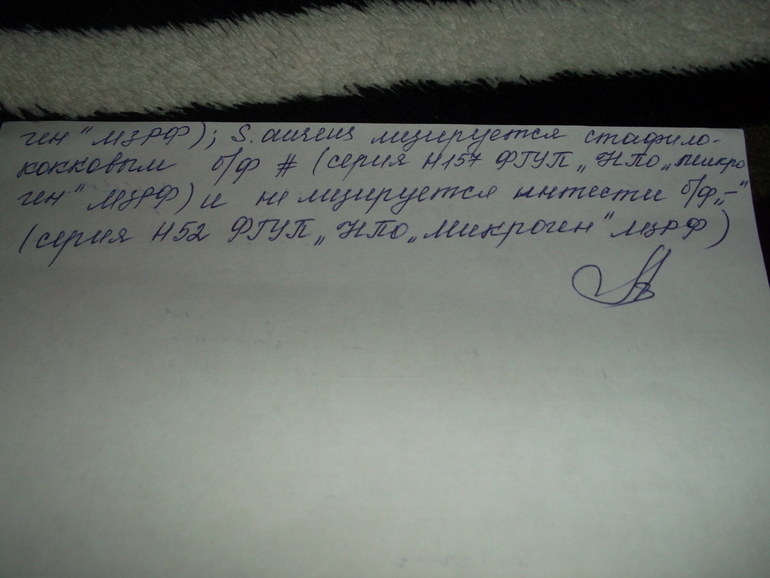 ген" МЗРФ); S. aureus лизируется стафило-
кокковым б/ф # (серия Н157 ФГУП „НПО „Микро
ген" МЗРФ) и не лизируется интести б/ф „–"
(серия Н52 ФГУП „НПО „Микроген" МЗРФ)